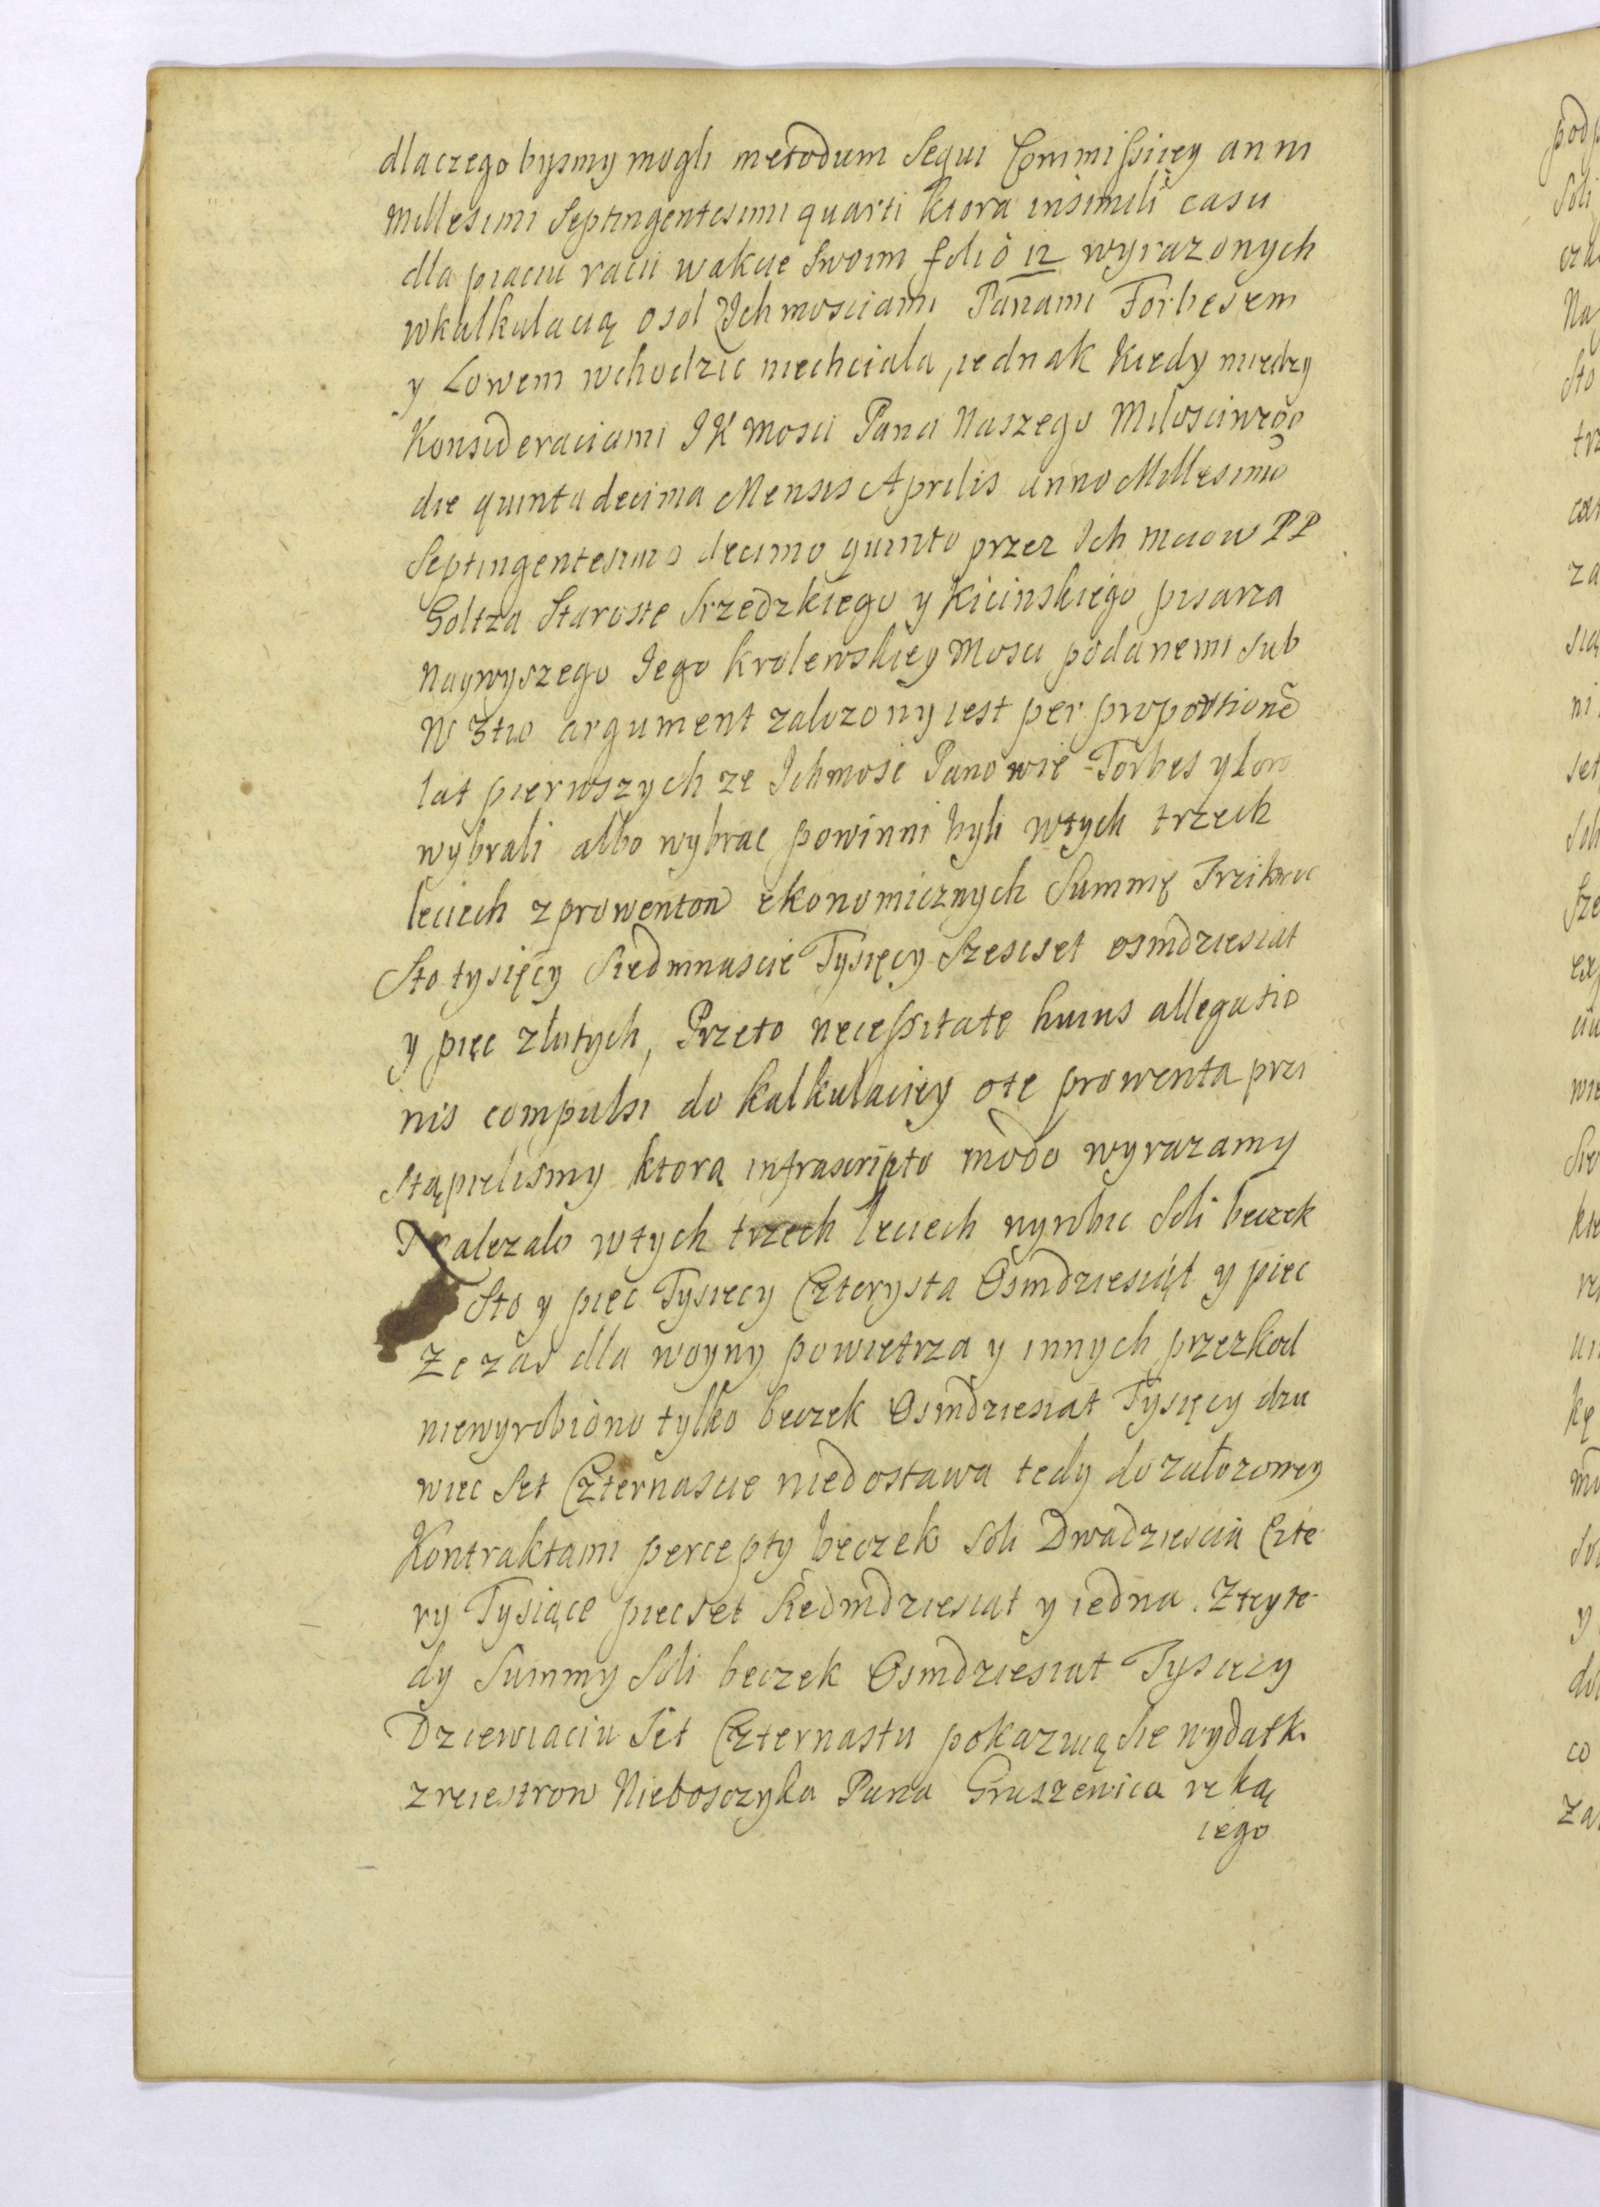 dlaczego bysmy mogli metodum Sequi Commissiiey anni
Millesimi Septingentesimi quarti ktora insimili casu
dla piąciu racii wakcie Swoim folio 12 wyrazonych
wkalkulacią osol Ichmosciami Panami Forbesem
y Lowem wchodzic niechciala, iednak kiedy między
Konsideraciami JK Mosci Pana Naszego Milosciwego
die quinta decima Mensis Aprilis anno Millesimo
Septingentesimo decimo quinto przez Ich Mciow PP
Goltza Staroste Srzedzkiego y Kicinskiego pisarza
Naywyszego Iego krolewskiey Mosci podanemi sub
N 3tio argument zalozony iest per proportionē
lat pierwszych ze Ichmosc Panowie Forbes y Low
wybrali albo wybrac powinni byli wtych trzech
leciech z prowentow ekonomicznych Summę Trzikroc
Sto tysięcy Siedmnascie Tysięcy Szescset osmdziesiat
y pięc zlotych, Przeto necessitate huius allegatio
nis compulsi do kalkulaciey ote prowenta przi
stąpielismy ktorą infrascripto modo wyrazamy
Nalezalo wtych trzech leciech wyrobic Soli beczek
Sto y pięc Tysięcy Czterysta Osmdziesiąt y pięc
Ze zas dla woyny powietrza y innych przezkod
niewyrobiono tylko beczek Osmdziesiat Tysięcy dzie
więc Set Czternascie niedostawa tedy do zalozoney
Kontraktami percepty beczek soli Dwadziescia Czte
ry Tysiące piecset Siedmdziesiat y iedna. Ztey te-
dy Summy Soli beczek Osmdziesiat Tysięcy
Dziewiaciu Set Czternastu pokazuią sie wydatki
zreiestrow Nieboszczyka Pana Gruszewica ręką
iego